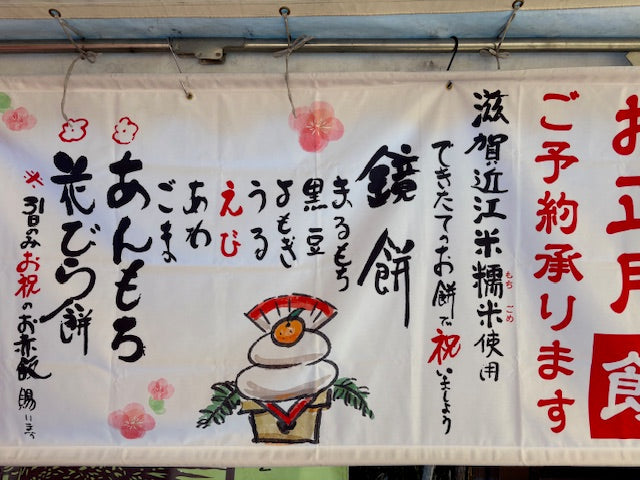 お正月
ご予約承ります
滋賀近江米糯米使用
もち ごめ
できたてのお餅で祝いましょう
鏡餅
まるもち
黒豆
よもぎ
うる
えび
あわ
ごま
あんもち
花びら餅
※31日のみお祝のお赤飯賜ります